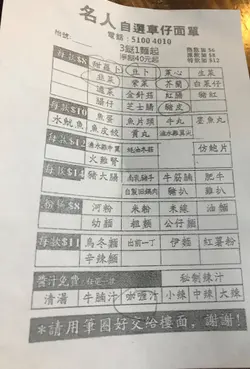 名人自選車仔面單
電話：51004010
枱號：
3餸1麵起
淨餸40元起
每款$8
豆卜 菜心 生菜
韮菜 芥蘭 白菜仔
金針菇 紅腸 豬紅
腸仔 芝士腸 豬皮
每款$10
魚蛋 魚片頭 牛丸 墨魚丸
水魷魚 魚皮餃 貢丸
仿鮑片
火雞腎
每款$14
豬大腸 牛筋腩 肥牛
豬扒 雞扒
河粉 米粉 米線 油麵
幼麵 粗麵 公仔麵
每款$11
烏冬麵 出前一丁 伊麵 紅薯粉
辛辣麵
醬汁免費：任選一款 秘制辣汁
清湯 牛腩汁 咖喱汁 小辣 中辣 大辣
*請用筆圈好交給樓面，謝謝！